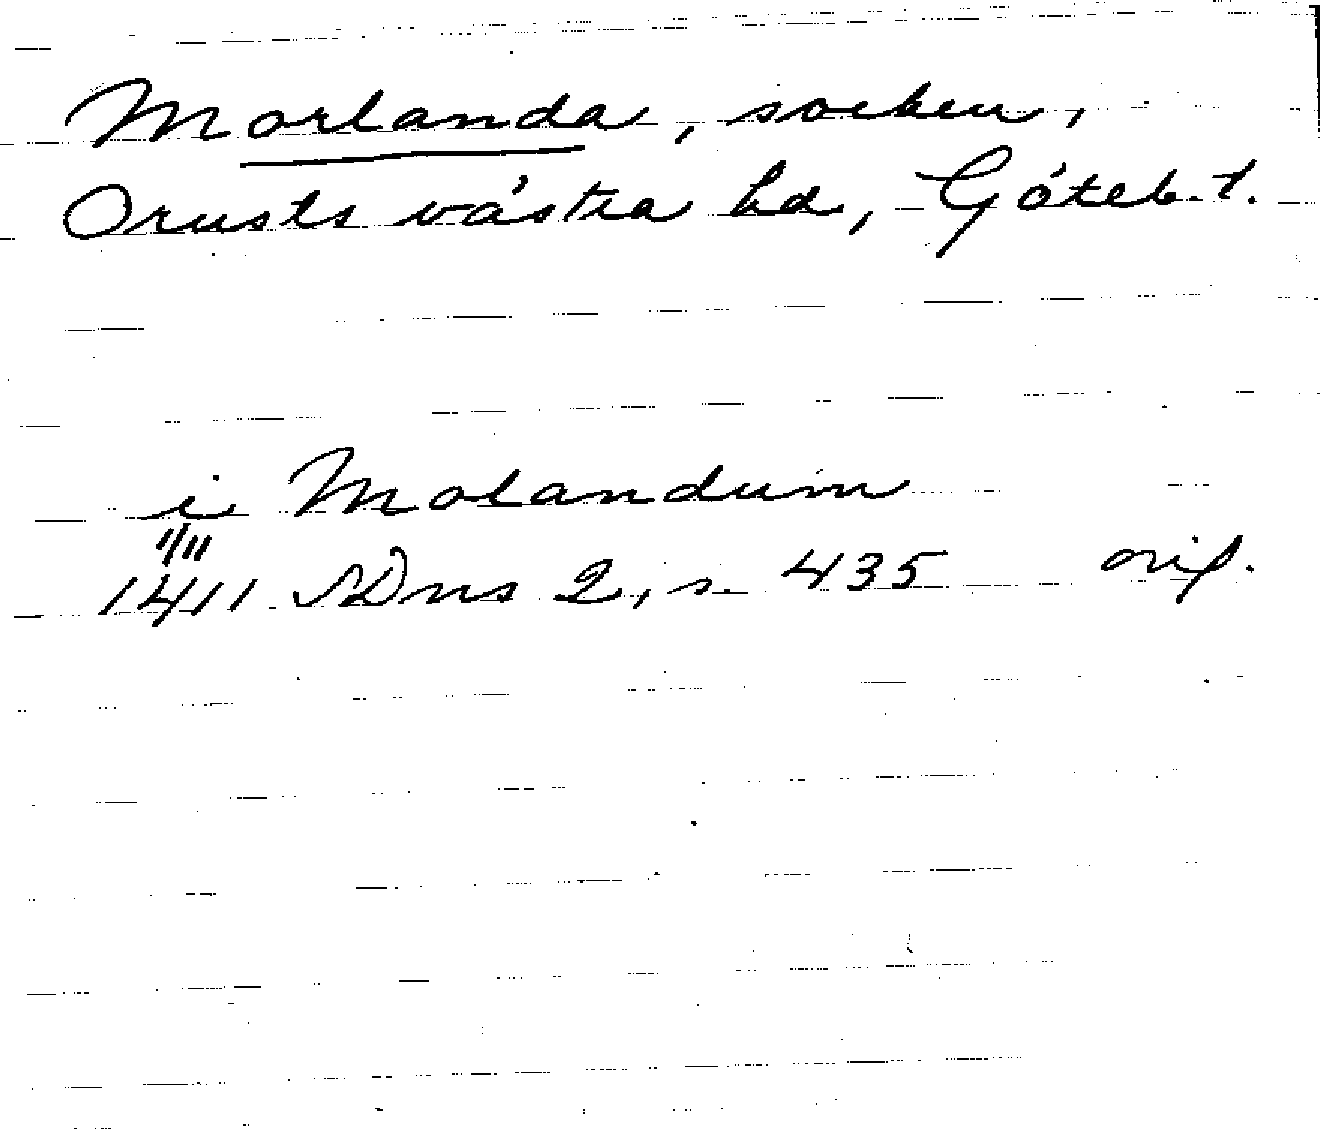 Morlanda, socken,
Orusts västra hd, Göteb. l.
i Molandum
1/11
1411 SDns 2, s. 435 orig.